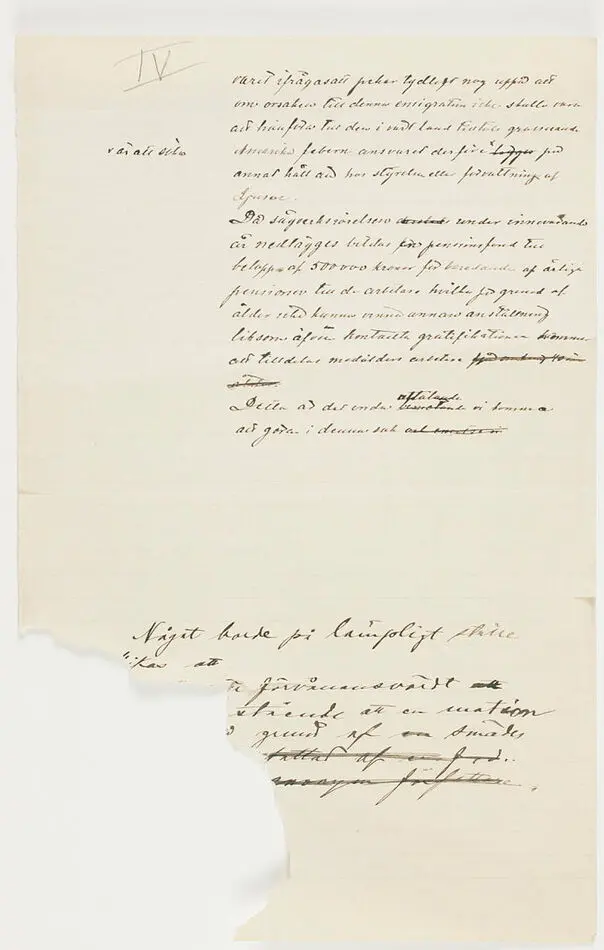 IV
varit ifrågasatt pekar tydligt nog uppå att
om orsaken till denna emigration icke skulle vara
att hänföra till den i vårt land grasserande
är att söka
Amerika febern ansvaret derför i ligger på
annat håll än hos styrelsen eller förvaltning af
Då sågverksrörelsen under innevarande
år nedlägges bildas för pensionsfond till
belopp af 500 000 kronor för beredande af årliga
pensioner till de arbetare hvilka på grund af
ålder icke kunna vinna annan anställning
liksom äfven kontanta gratifikationer komma
att tilldelas medålders arbetare
Detta är det enda uttalande vi komma
att göra i denna sak
Något borde på lämpligt ställe
att
förvånansvärdt att
stående att en motion
grund af en smädes
af en
författare.